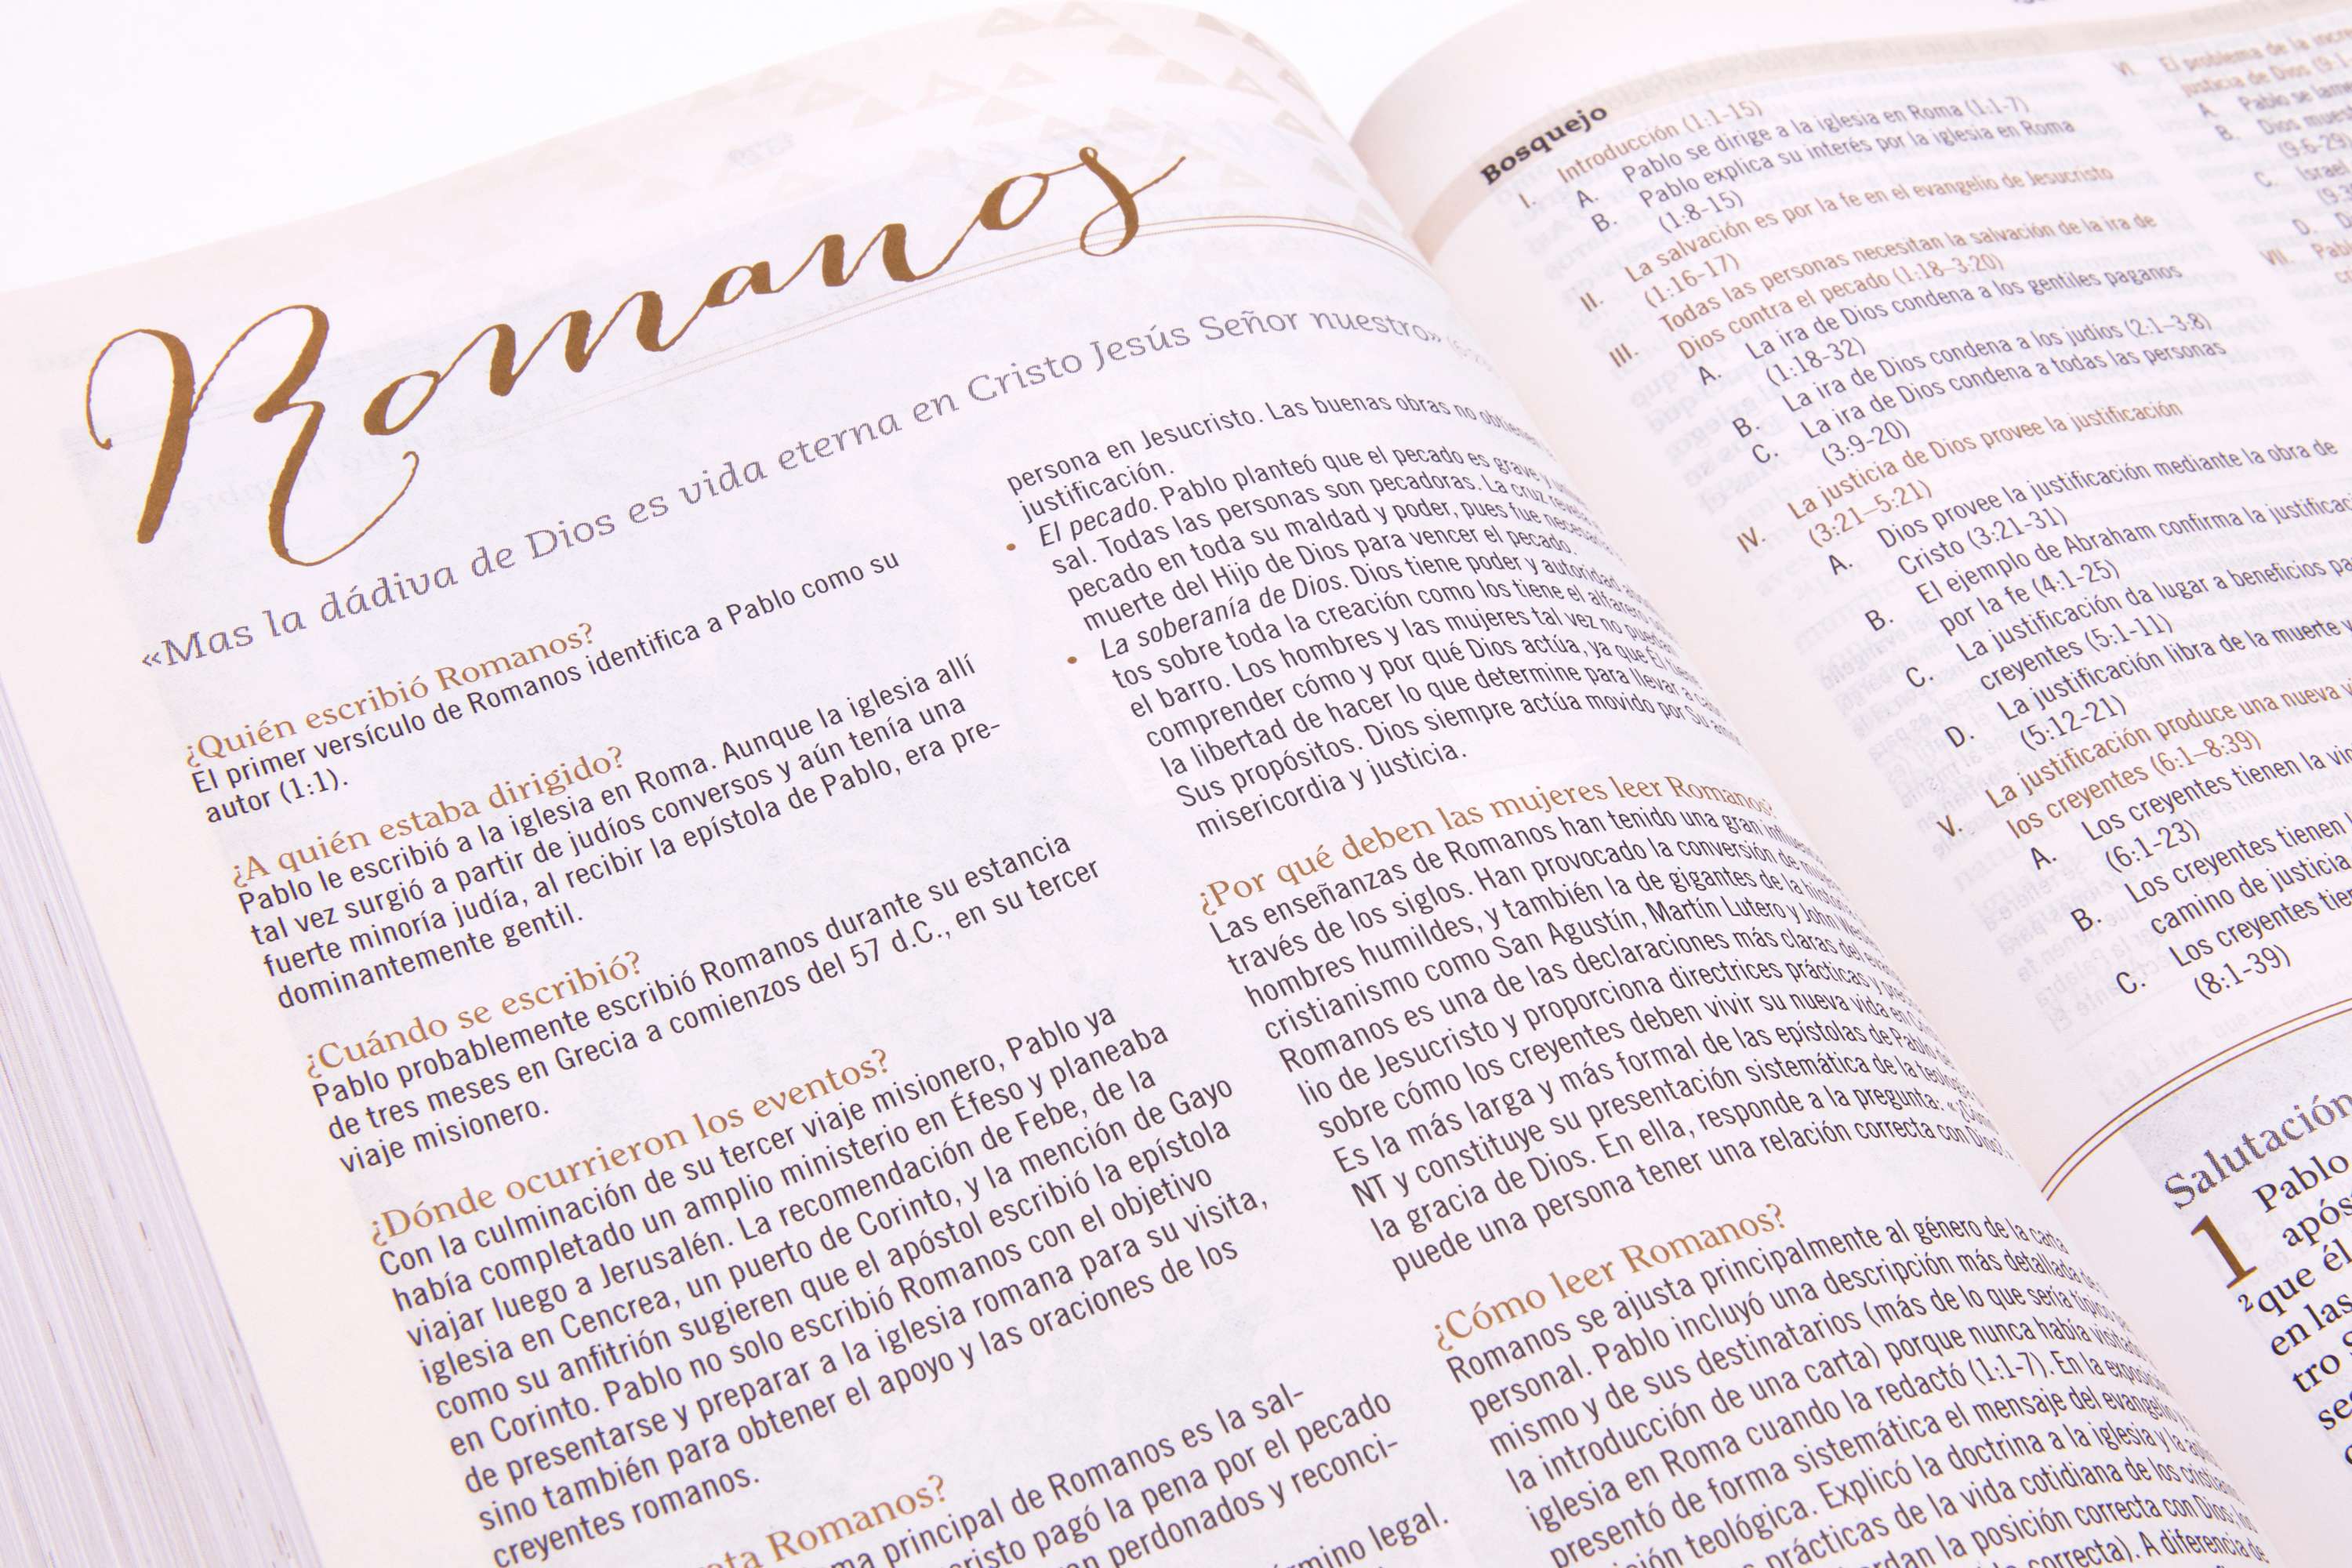 Romanos
«Mas la dádiva de Dios es vida eterna en Cristo Jesús Señor nuestro»
¿Quién escribió Romanos?
El primer versículo de Romanos identifica a Pablo como su
autor (1:1).
¿A quién estaba dirigido?
Pablo le escribió a la iglesia en Roma. Aunque la iglesia allí
tal vez surgió a partir de judíos conversos y aún tenía una
fuerte minoría judía, al recibir la epístola de Pablo, era pre-
dominantemente gentil.
¿Cuándo se escribió?
Pablo probablemente escribió Romanos durante su estancia
de tres meses en Grecia a comienzos del 57 d.C., en su tercer
viaje misionero.
¿Dónde ocurrieron los eventos?
Con la culminación de su tercer viaje misionero, Pablo ya
había completado un amplio ministerio en Éfeso y planeaba
viajar luego a Jerusalén. La recomendación de Febe, de la
iglesia en Cencrea, un puerto de Corinto, y la mención de Gayo
como su anfitrión sugieren que el apóstol escribió la epístola
en Corinto. Pablo no solo escribió Romanos con el objetivo
de presentarse y preparar a la iglesia romana para su visita,
sino también para obtener el apoyo y las oraciones de los
creyentes romanos.
Romanos?
principal de Romanos es la sal-
pagó la pena por el pecado
perdonados y reconci-
legal.
persona en Jesucristo. Las buenas obras no
justificación.
• El pecado. Pablo planteó que el pecado es grave y
sal. Todas las personas son pecadoras. La cruz
pecado en toda su maldad y poder, pues fue
muerte del Hijo de Dios para vencer el pecado.
• La soberanía de Dios. Dios tiene poder y autoridad
tos sobre toda la creación como los tiene el alfarero
el barro. Los hombres y las mujeres tal vez no puedan
comprender cómo y por qué Dios actúa, ya que Él tiene
la libertad de hacer lo que determine para llevar a cabo
Sus propósitos. Dios siempre actúa movido por Su
misericordia y justicia.
¿Por qué deben las mujeres leer Romanos?
Las enseñanzas de Romanos han tenido una gran
través de los siglos. Han provocado la conversión de
hombres humildes, y también la de gigantes de la
cristianismo como San Agustín, Martín Lutero y John
Romanos es una de las declaraciones más claras del
lio de Jesucristo y proporciona directrices prácticas y
sobre cómo los creyentes deben vivir su nueva vida en
Es la más larga y más formal de las epístolas de Pablo
NT y constituye su presentación sistemática de la
la gracia de Dios. En ella, responde a la pregunta: «¿Cómo
puede una persona tener una relación correcta con Dios?».
¿Cómo leer Romanos?
Romanos se ajusta principalmente al género de la carta
personal. Pablo incluyó una descripción más detallada de
mismo y de sus destinatarios (más de lo que sería típico
la introducción de una carta) porque nunca había visitado
iglesia en Roma cuando la redactó (1:1-7). En la
presentó de forma sistemática el mensaje del evangelio
teológica. Explicó la doctrina a la iglesia y la
prácticas de la vida cotidiana de los
la posición correcta con Dios,
correcta). A diferencia de
Bosquejo
I. Introducción (1:1-15)
A. Pablo se dirige a la iglesia en Roma (1:1-7)
B. Pablo explica su interés por la iglesia en Roma
(1:8-15)
II. La salvación es por la fe en el evangelio de Jesucristo
(1:16-17)
III. Todas las personas necesitan la salvación de la ira de
Dios contra el pecado (1:18–3:20)
A. La ira de Dios condena a los gentiles paganos
(1:18-32)
B. La ira de Dios condena a los judíos (2:1–3:8)
C. La ira de Dios condena a todas las personas
(3:9-20)
IV. La justicia de Dios provee la justificación
(3:21–5:21)
A. Dios provee la justificación mediante la obra de
Cristo (3:21-31)
B. El ejemplo de Abraham confirma la
por la fe (4:1-25)
C. La justificación da lugar a beneficios
creyentes (5:1-11)
D. La justificación libra de la muerte y
(5:12-21)
V. La justificación produce una nueva
los creyentes (6:1–8:39)
A. Los creyentes tienen la
(6:1-23)
B. Los creyentes tienen
camino de justicia
C. Los creyentes
(8:1-39)
VI. El problema de la
justicia de Dios
A. Pablo se
B. Dios
(9:6-29)
C.
D.
VII.
Salutación
1 Pablo
2 que él
en las